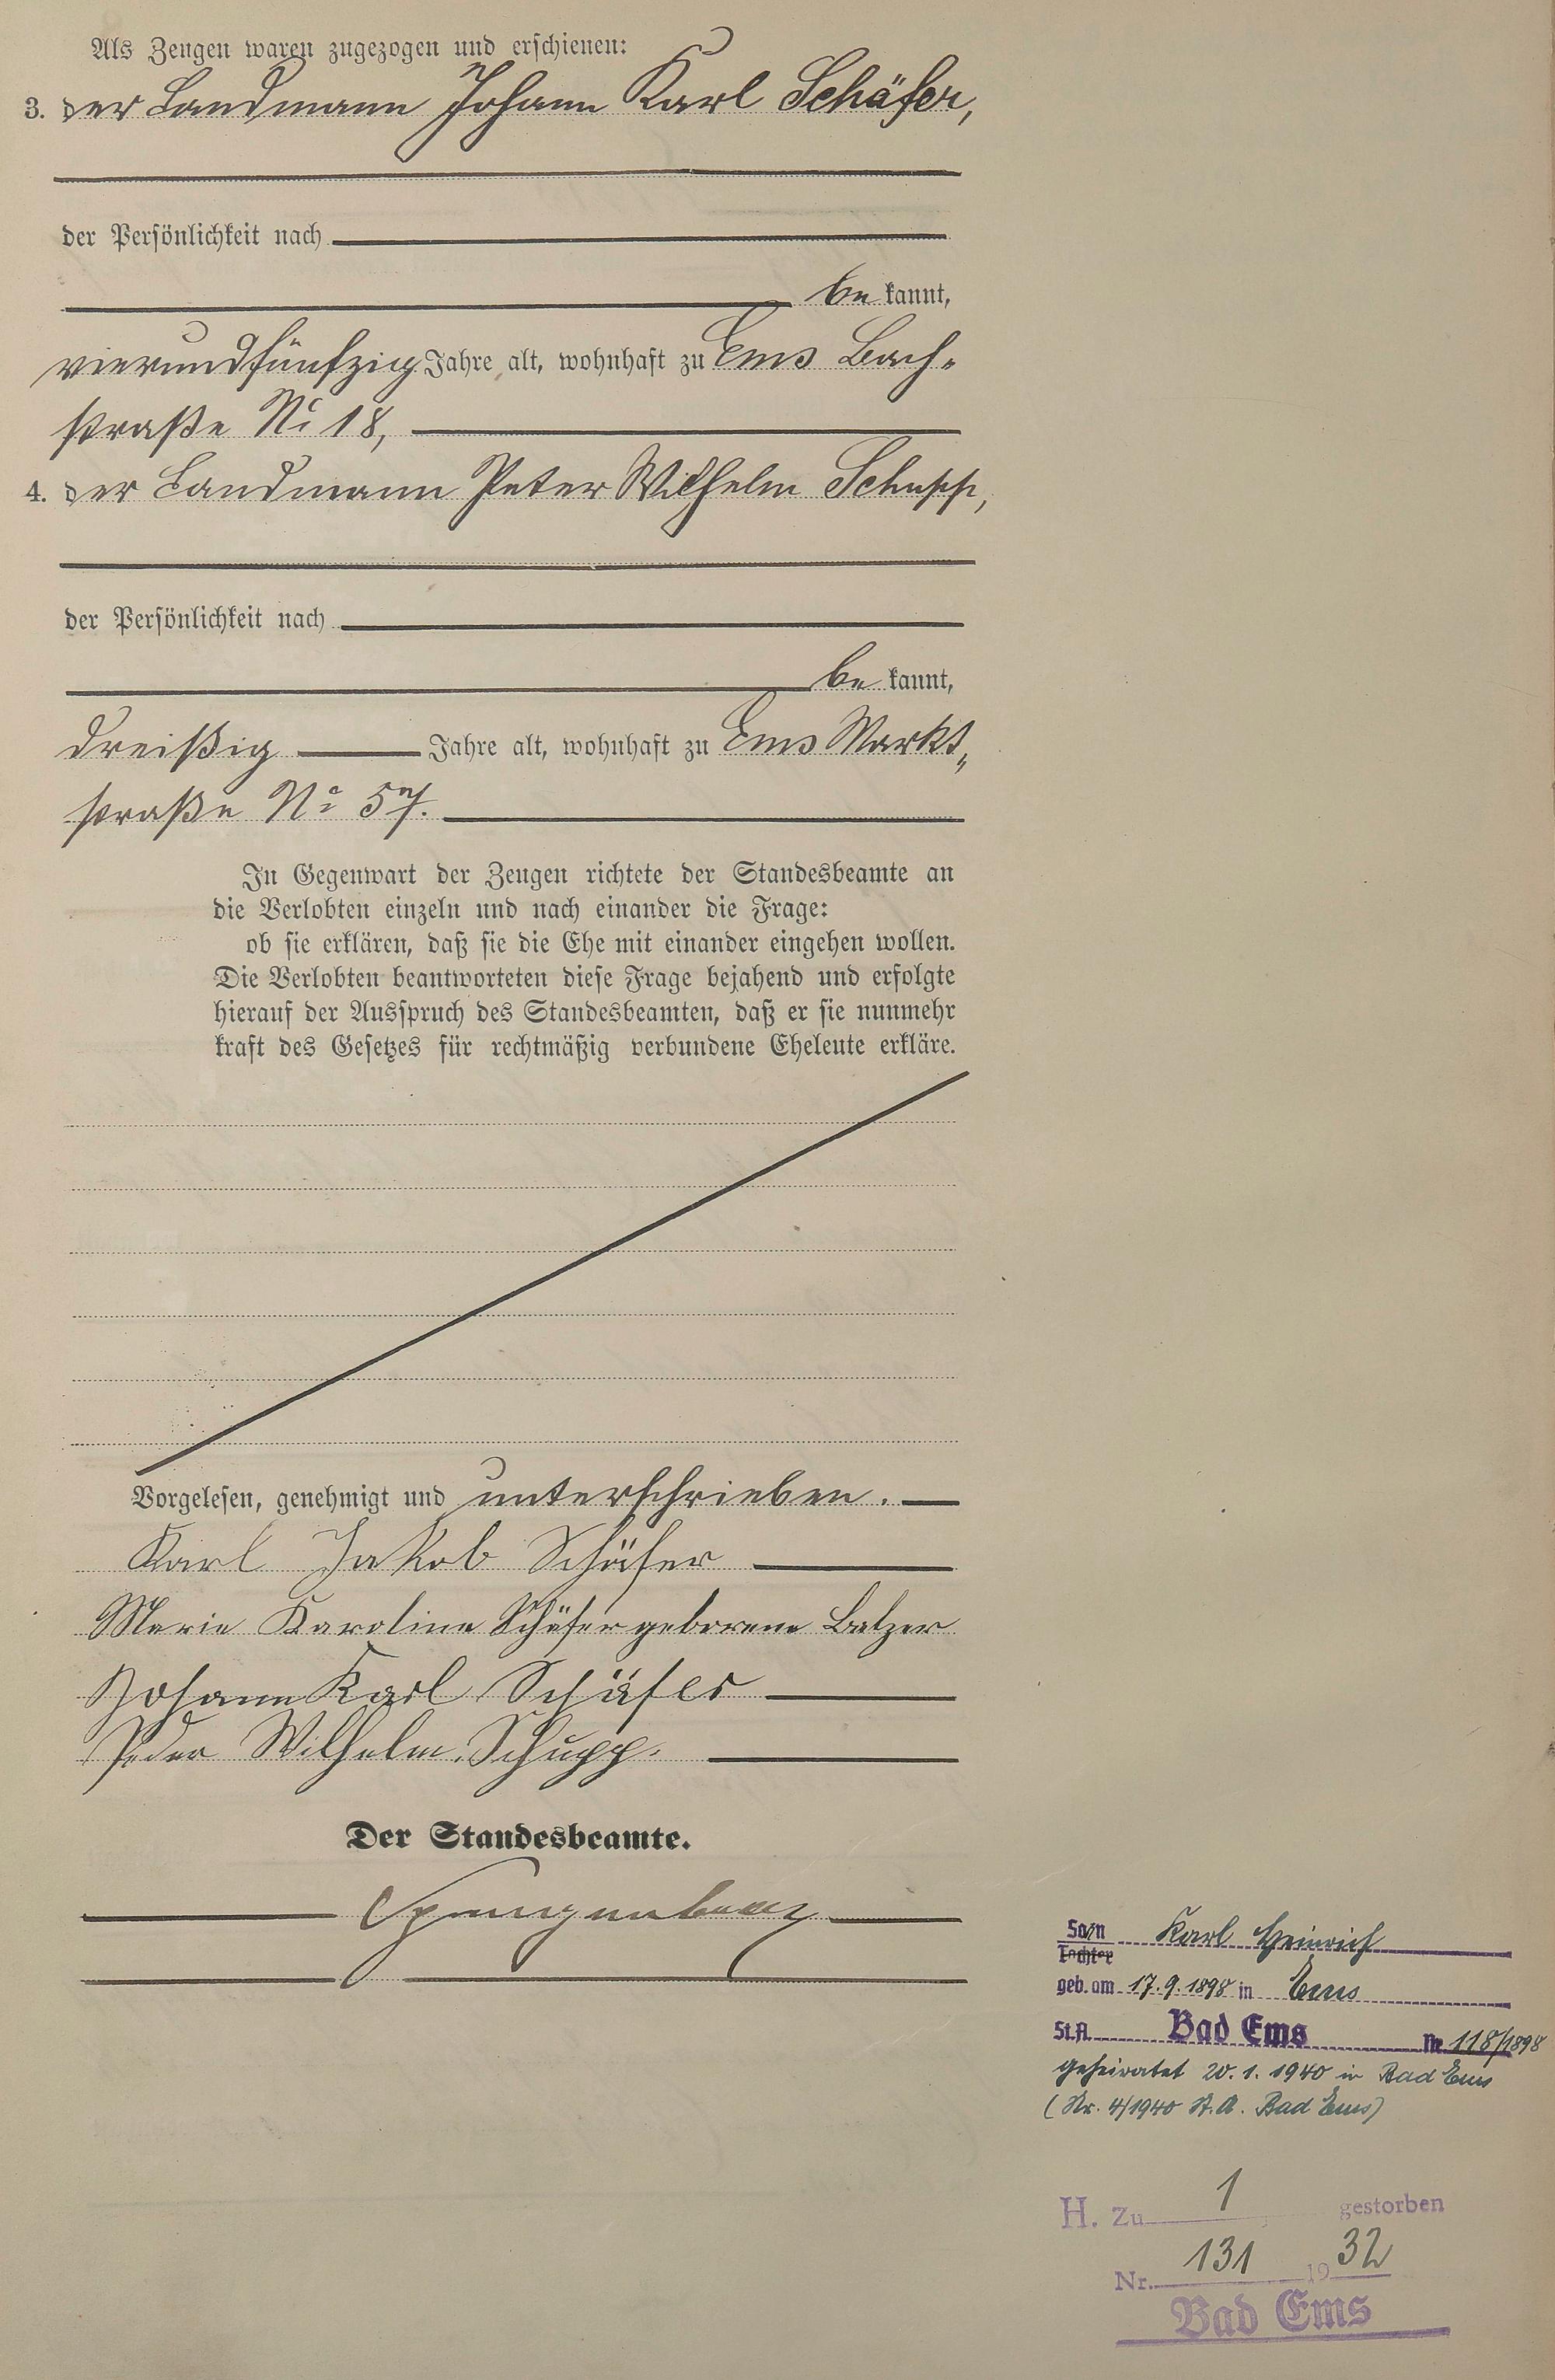 Als Zeugen waren zugezogen und erschienen:
3. der Landmann Johann Karl Schäfer,
der Persönlichkeit nach
be kannt,
vierundfünfzig Jahre alt, wohnhaft zu Ems Bach-
straße No 18,
4. der Landmann Peter Wilhelm Schupp,
der Persönlichkeit nach
be kannt,
dreißig Jahre alt, wohnhaft zu Ems Markt-
straße No 57.
In Gegenwart der Zeugen richtete der Standesbeamte an
die Verlobten einzeln und nach einander die Frage:
ob sie erklären, daß sie die Ehe mit einander eingehen wollen.
Die Verlobten beantworteten diese Frage bejahend und erfolgte
hierauf der Ausspruch des Standesbeamten, daß er sie nunmehr
kraft des Gesetzes für rechtmäßig verbundene Eheleute erkläre.
Vorgelesen, genehmigt und unterschrieben.
Karl Jakob Schäfer
Marie Karoline Schäfer geborene Balzer
Johann Karl Schäfer
Peter Wilhelm Schupp.
Der Standesbeamte.
Sohn Karl Heinrich
Tochter
geb. am 17.9.1898 in Ems
St.A. Bad Ems Nr 118/1898
geheiratet 20.1.1940 in Bad Ems
(Nr. 4/1940 St.A. Bad Ems)
H. Zu 1 gestorben
Nr. 131 1932
Bad Ems